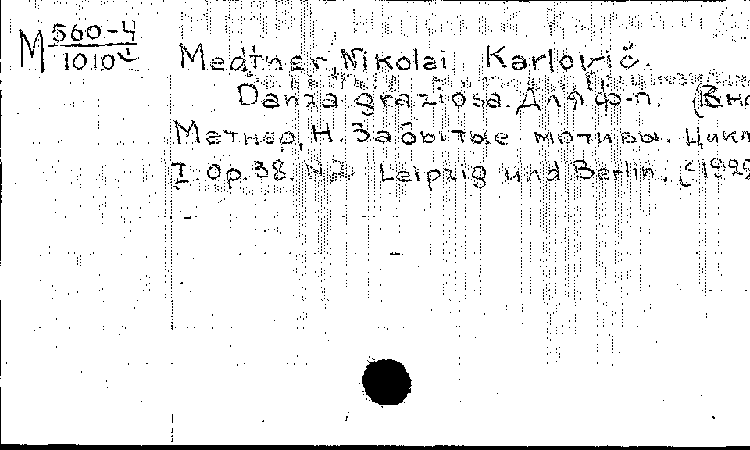 M 560-4
1010
Medtner, Nikolai Karlovič.
Danza graziosa. Для ф-п. (Вно
Метнер, Н. Забытые мотивы. Цикл
I. Op. 38. №2 Leipzig und Berlin,